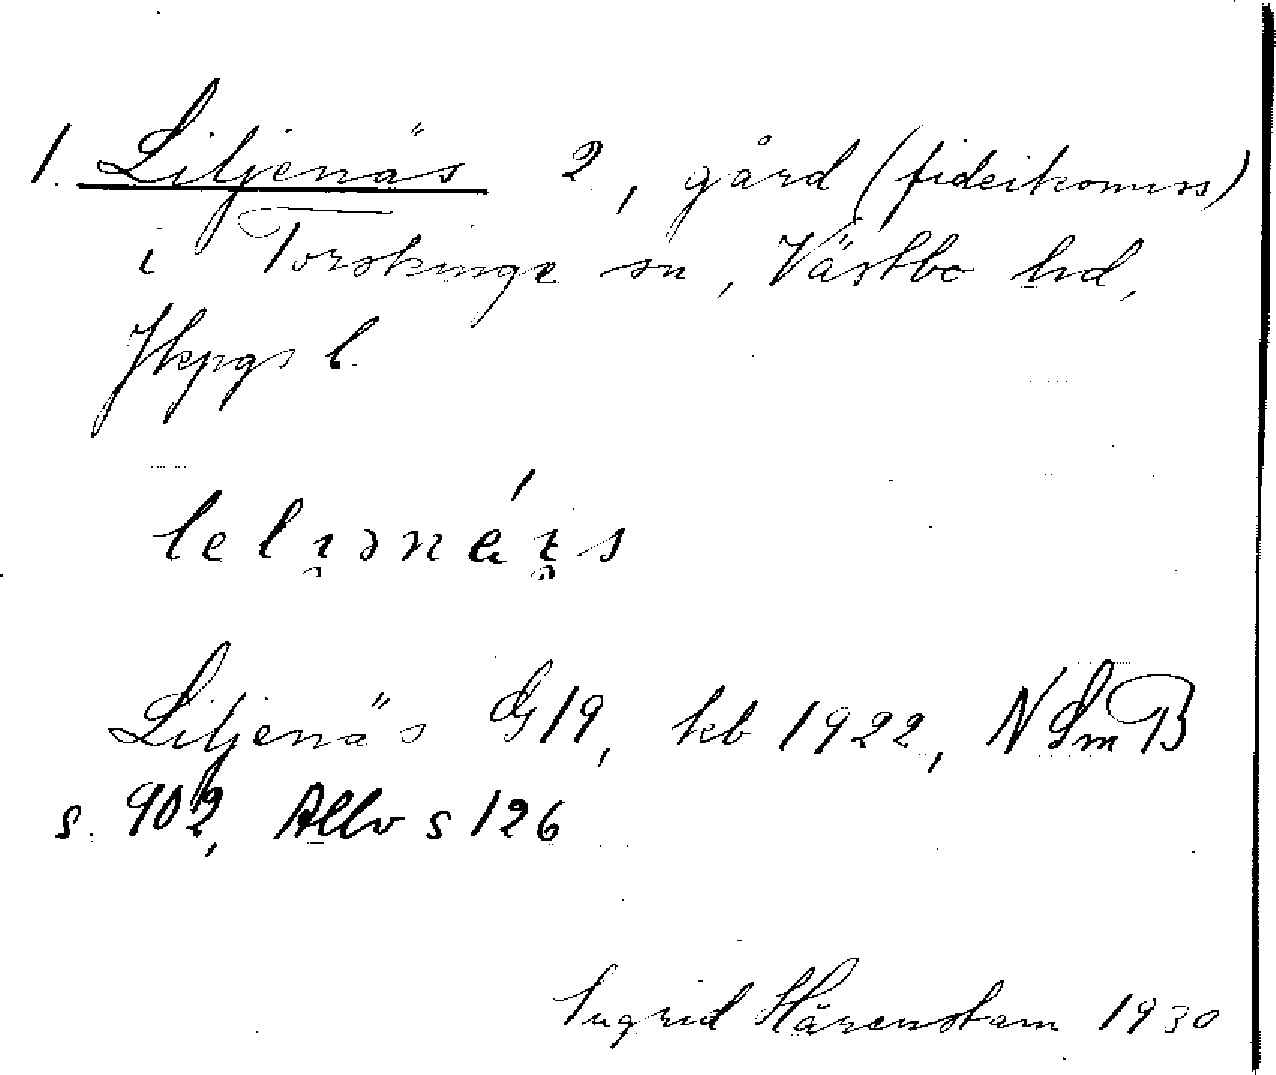 1. Liljenäs 2, gård (fideikomiss)
i Torskinge sn, Västbo hd,
Jkpgs l.
Liljenäs G19, kb 1922, NSmB
s. 902, Allv s 126
Ingrid Hårenstam 1930